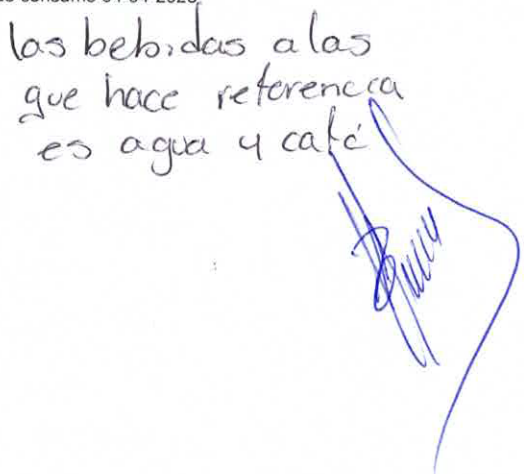 las bebidas a las
que hace referencia
es agua y café